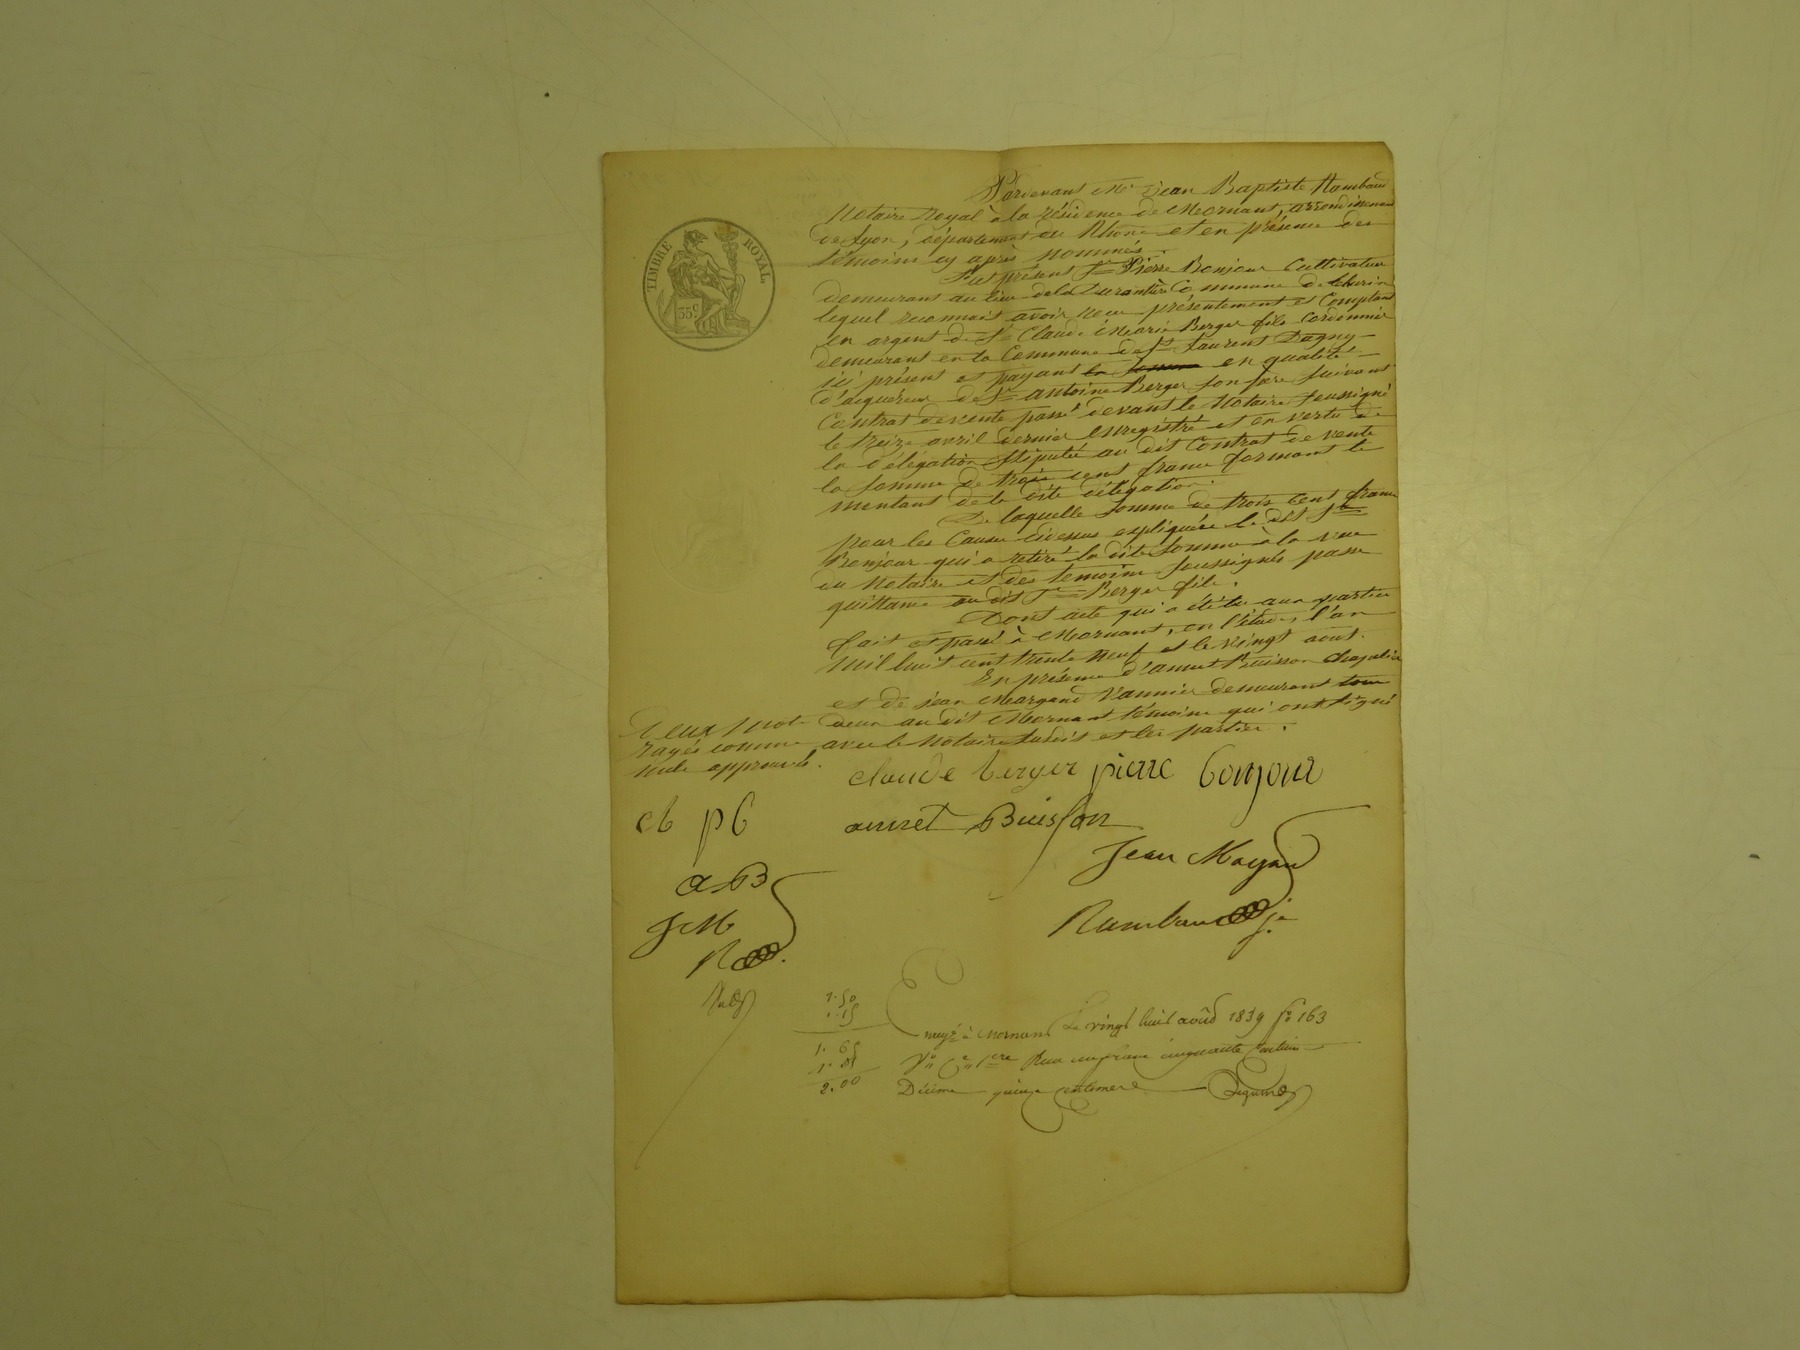 TIMBRE ROYAL
35 c
Pardevant Me Jean Baptiste Rambaud
Notaire Royal à la résidence de Mornant, arrondissement
de Lyon, département du Rhône et en présence des
témoins cy après nommés.
Fut présent Sr Pierre Bonjour Cultivateur
demeurant au lieu de la Durantière Commune de
lequel reconnait avoir reçu présentement et Comptant
en argent de Sr Claude Marie Berger fils Cordonnier
demeurant en la Commune de St Laurent Dagny
ici présent et payant la somme en qualité
d'acquéreur de Sr antoine Berger son père suivant
Contrat de vente passé devant le Notaire soussigné
le treize avril dernier enregistré et en vertu de
la délégation stipulée au dit Contrat de vente
la somme de trois cent francs formant le
montant de la dite délégation.
De laquelle somme de trois cent francs
pour les Causes cidessus expliquées le dit Sr
Bonjour qui a retiré la dite somme à la vue
du Notaire et des temoins soussignés passe
quittance au dit Sr Berger fils.
Dont acte qui a été lu aux parties
fait et passé à Mornant, en l'étude, l'an
mil huit cent trente neuf et le vingt aout.
En présence d'annet Buisson chapelier
et de jean Margand Vannier demeurant tous
deux au dit Mornant témoins qui ont signé
avec le Notaire susdit et les parties.
Deux mots
rayés comme
nuls approuvés.
claude berger pierre bonjour
cb pb
annet Buisson
Jean Magand
aB
JM
Rambaud je
R
1.50
.15
1.65
.35
2.00
Enregé à Mornant Le vingt huit août 1839 fo 163
Vo Ce 1ere Reçu un franc cinquante Centimes
Décime quinze centimes